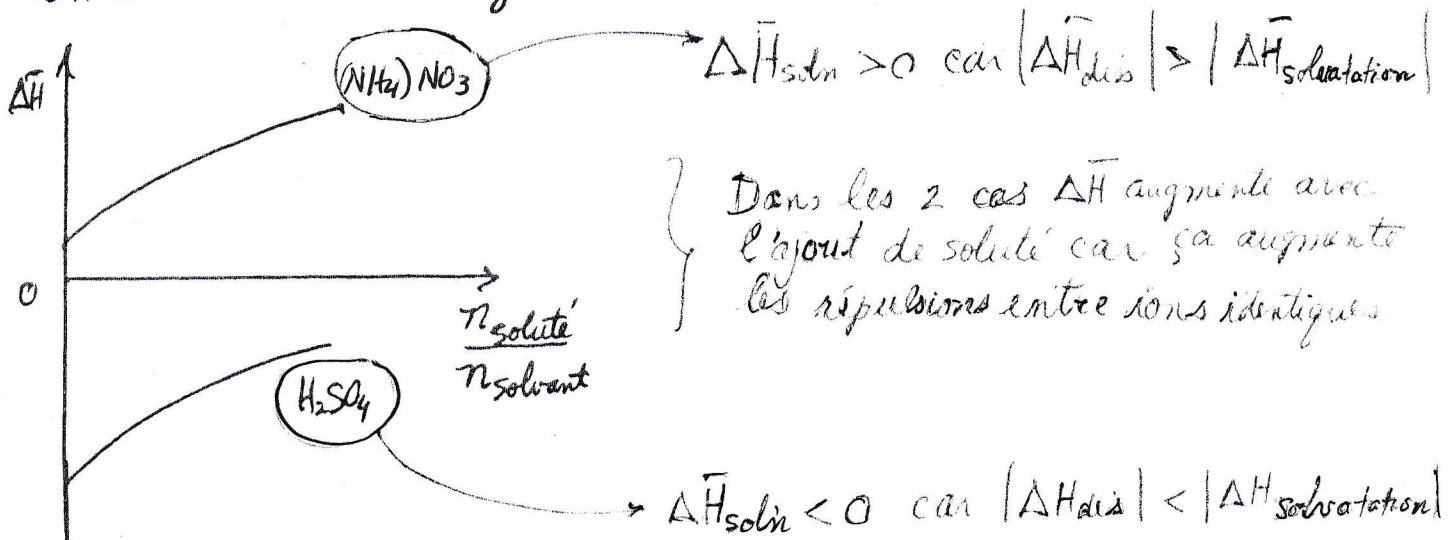 (NH₄)NO₃
ΔH̄soln >0 car |ΔH̄dis| > |ΔH̄solvatation|
ΔH̄
Dans les 2 cas ΔH̄ augmente avec
l'ajout de soluté car ça augmente
les répulsions entre ions identiques
0
n soluté
n solvant
H₂SO₄
ΔH̄soln < 0 car |ΔHdis| < |ΔHsolvatation|